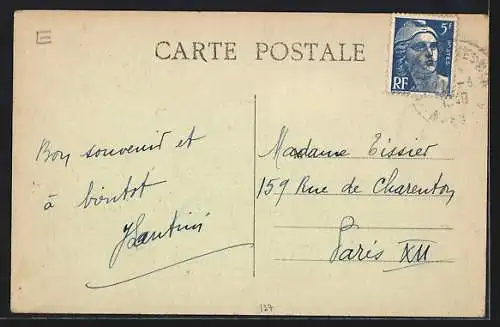 CARTE POSTALE
5F
POSTES
RF
Bon souvenir et
à bientot
Madame Tissier
159 Rue de Charenton
Paris XII
127